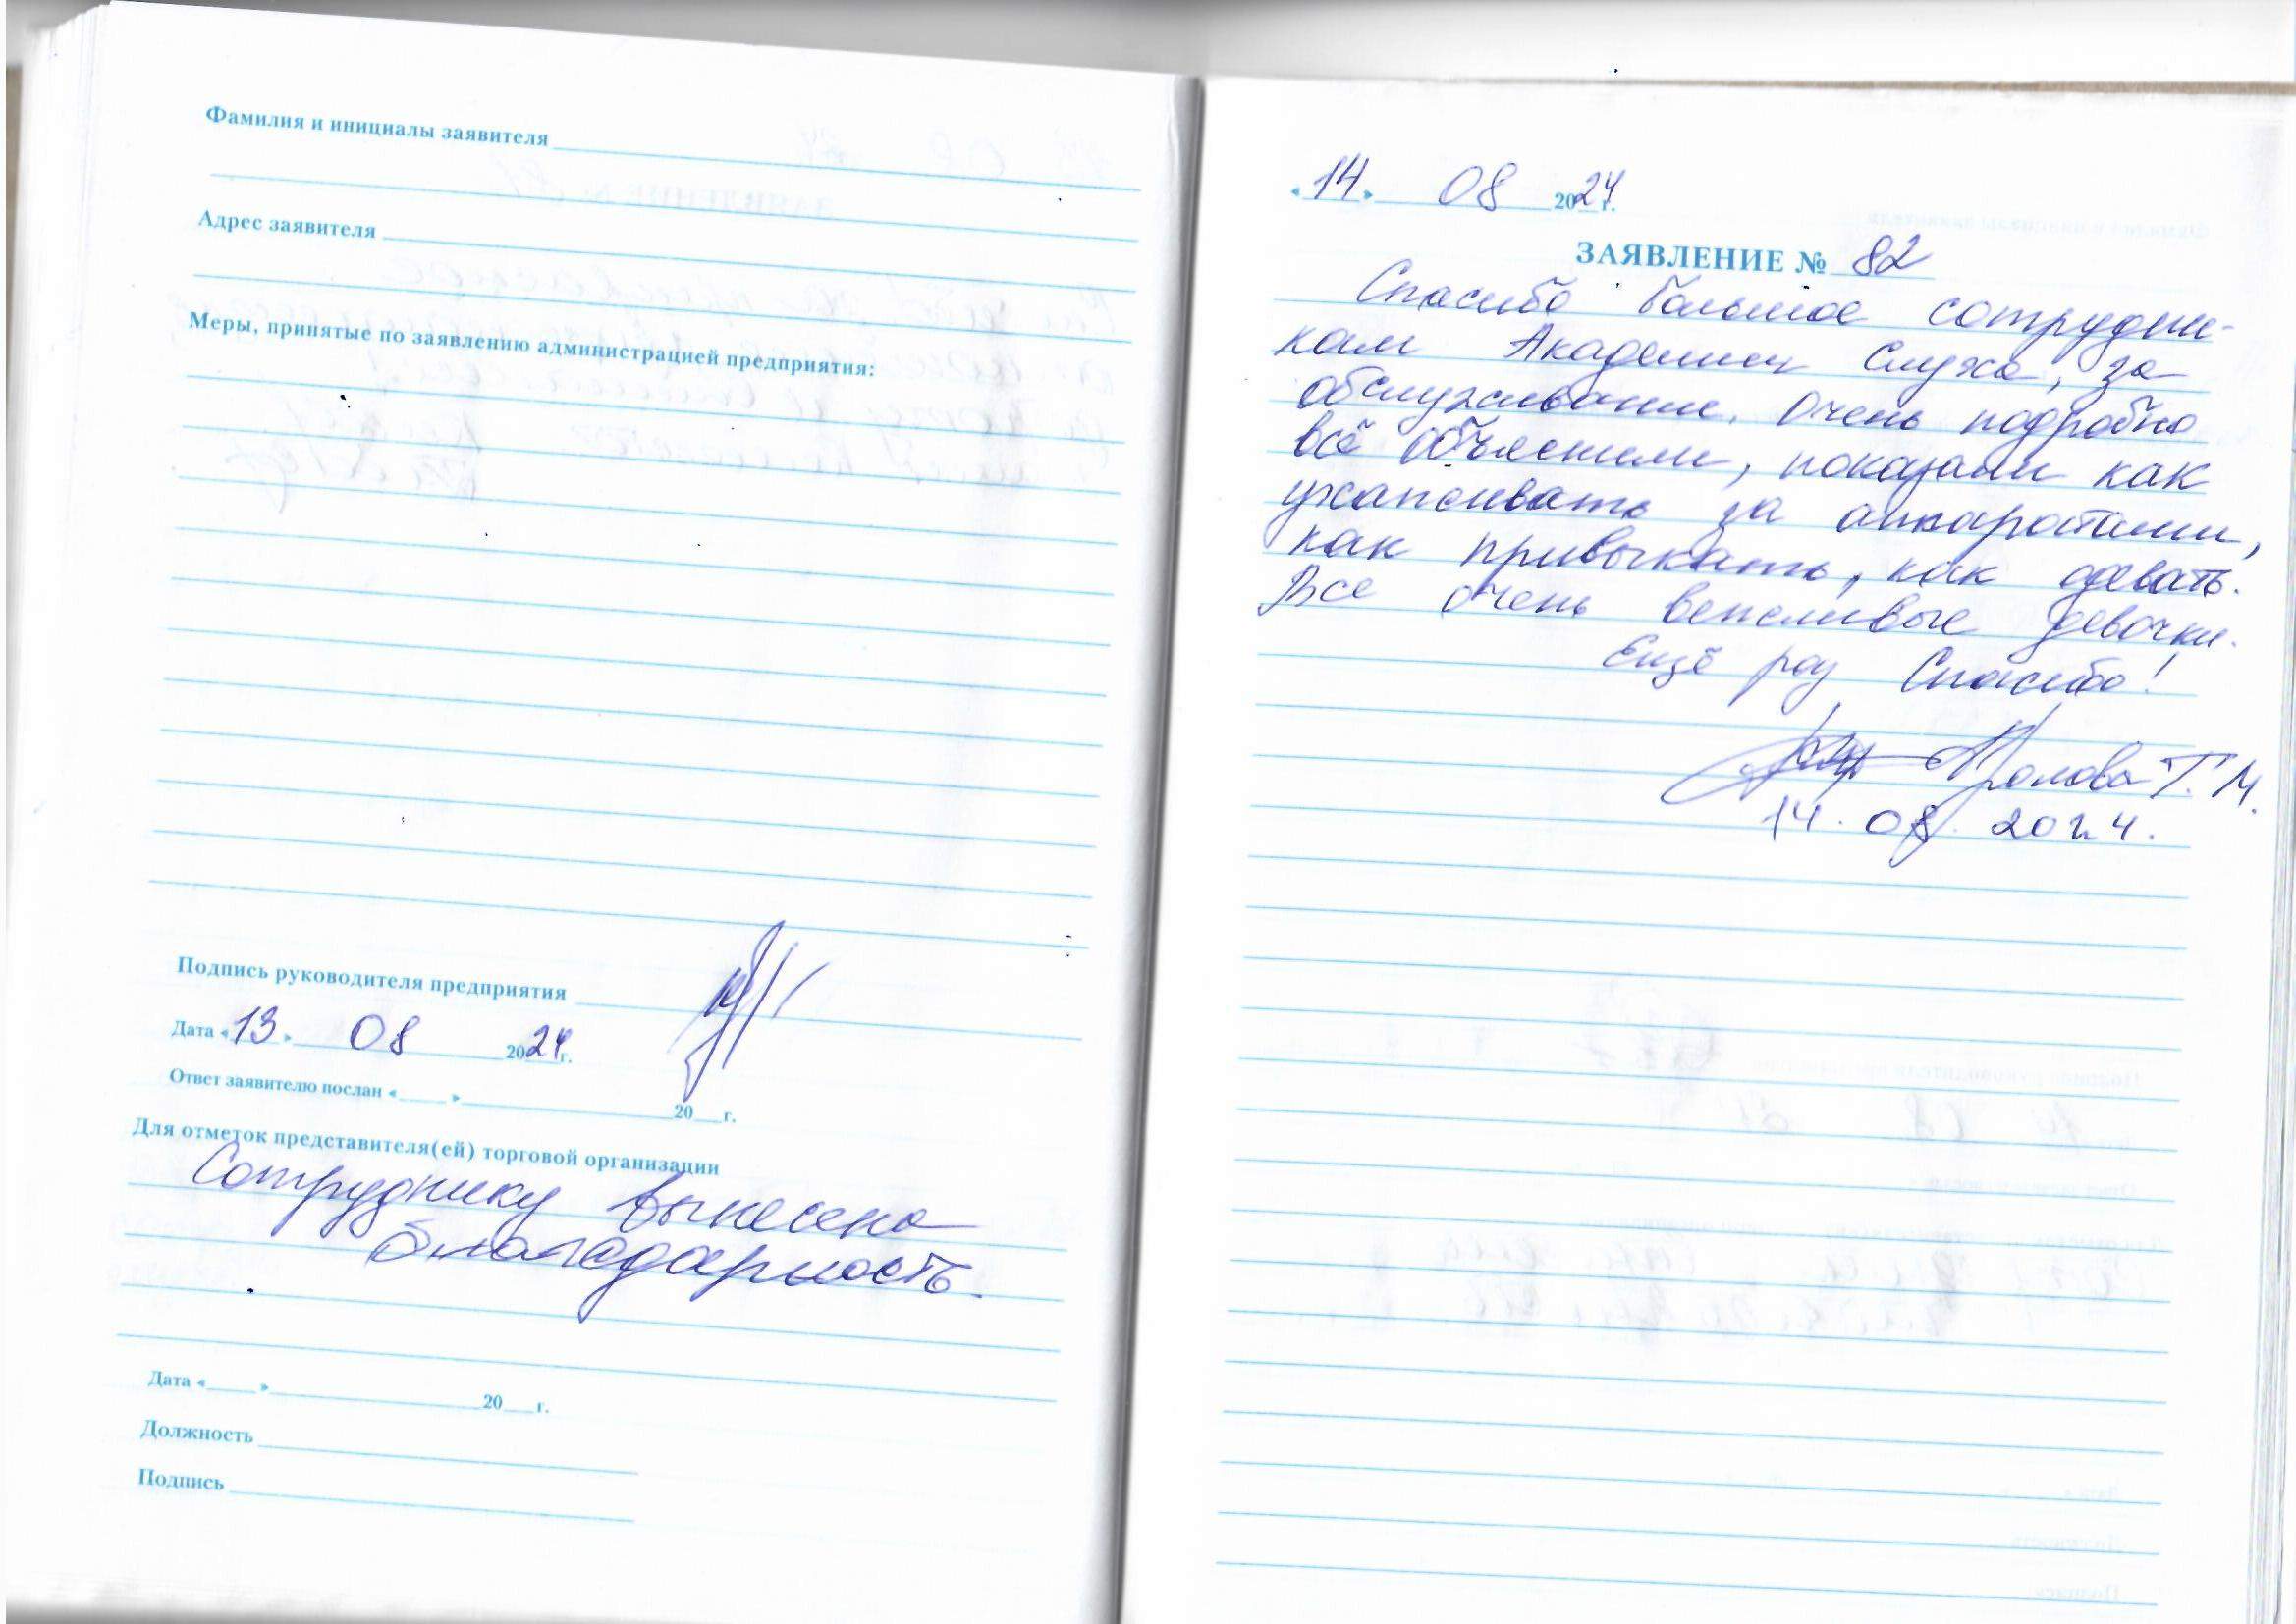 Фамилия и инициалы заявителя
Адрес заявителя
Меры, принятые по заявлению администрацией предприятия:
Подпись руководителя предприятия
Дата «13» 08 2024г.
Ответ заявителю послан «____» ____ 20__г.
Для отметок представителя(ей) торговой организации
Сотруднику вынесена
благодарность.
Дата «____» ____ 20__г.
Должность
Подпись
«14» 08 2024г.
ЗАЯВЛЕНИЕ № 82
Спасибо большое сотрудни-
кам Академии Слуха, за
обслуживание. Очень подробно
всё объяснили, показали как
ухаживать за аппаратами,
как привыкать, как одевать.
Все очень вежливые девочки.
Ещё раз Спасибо!
Т.М.
14.08.2024.